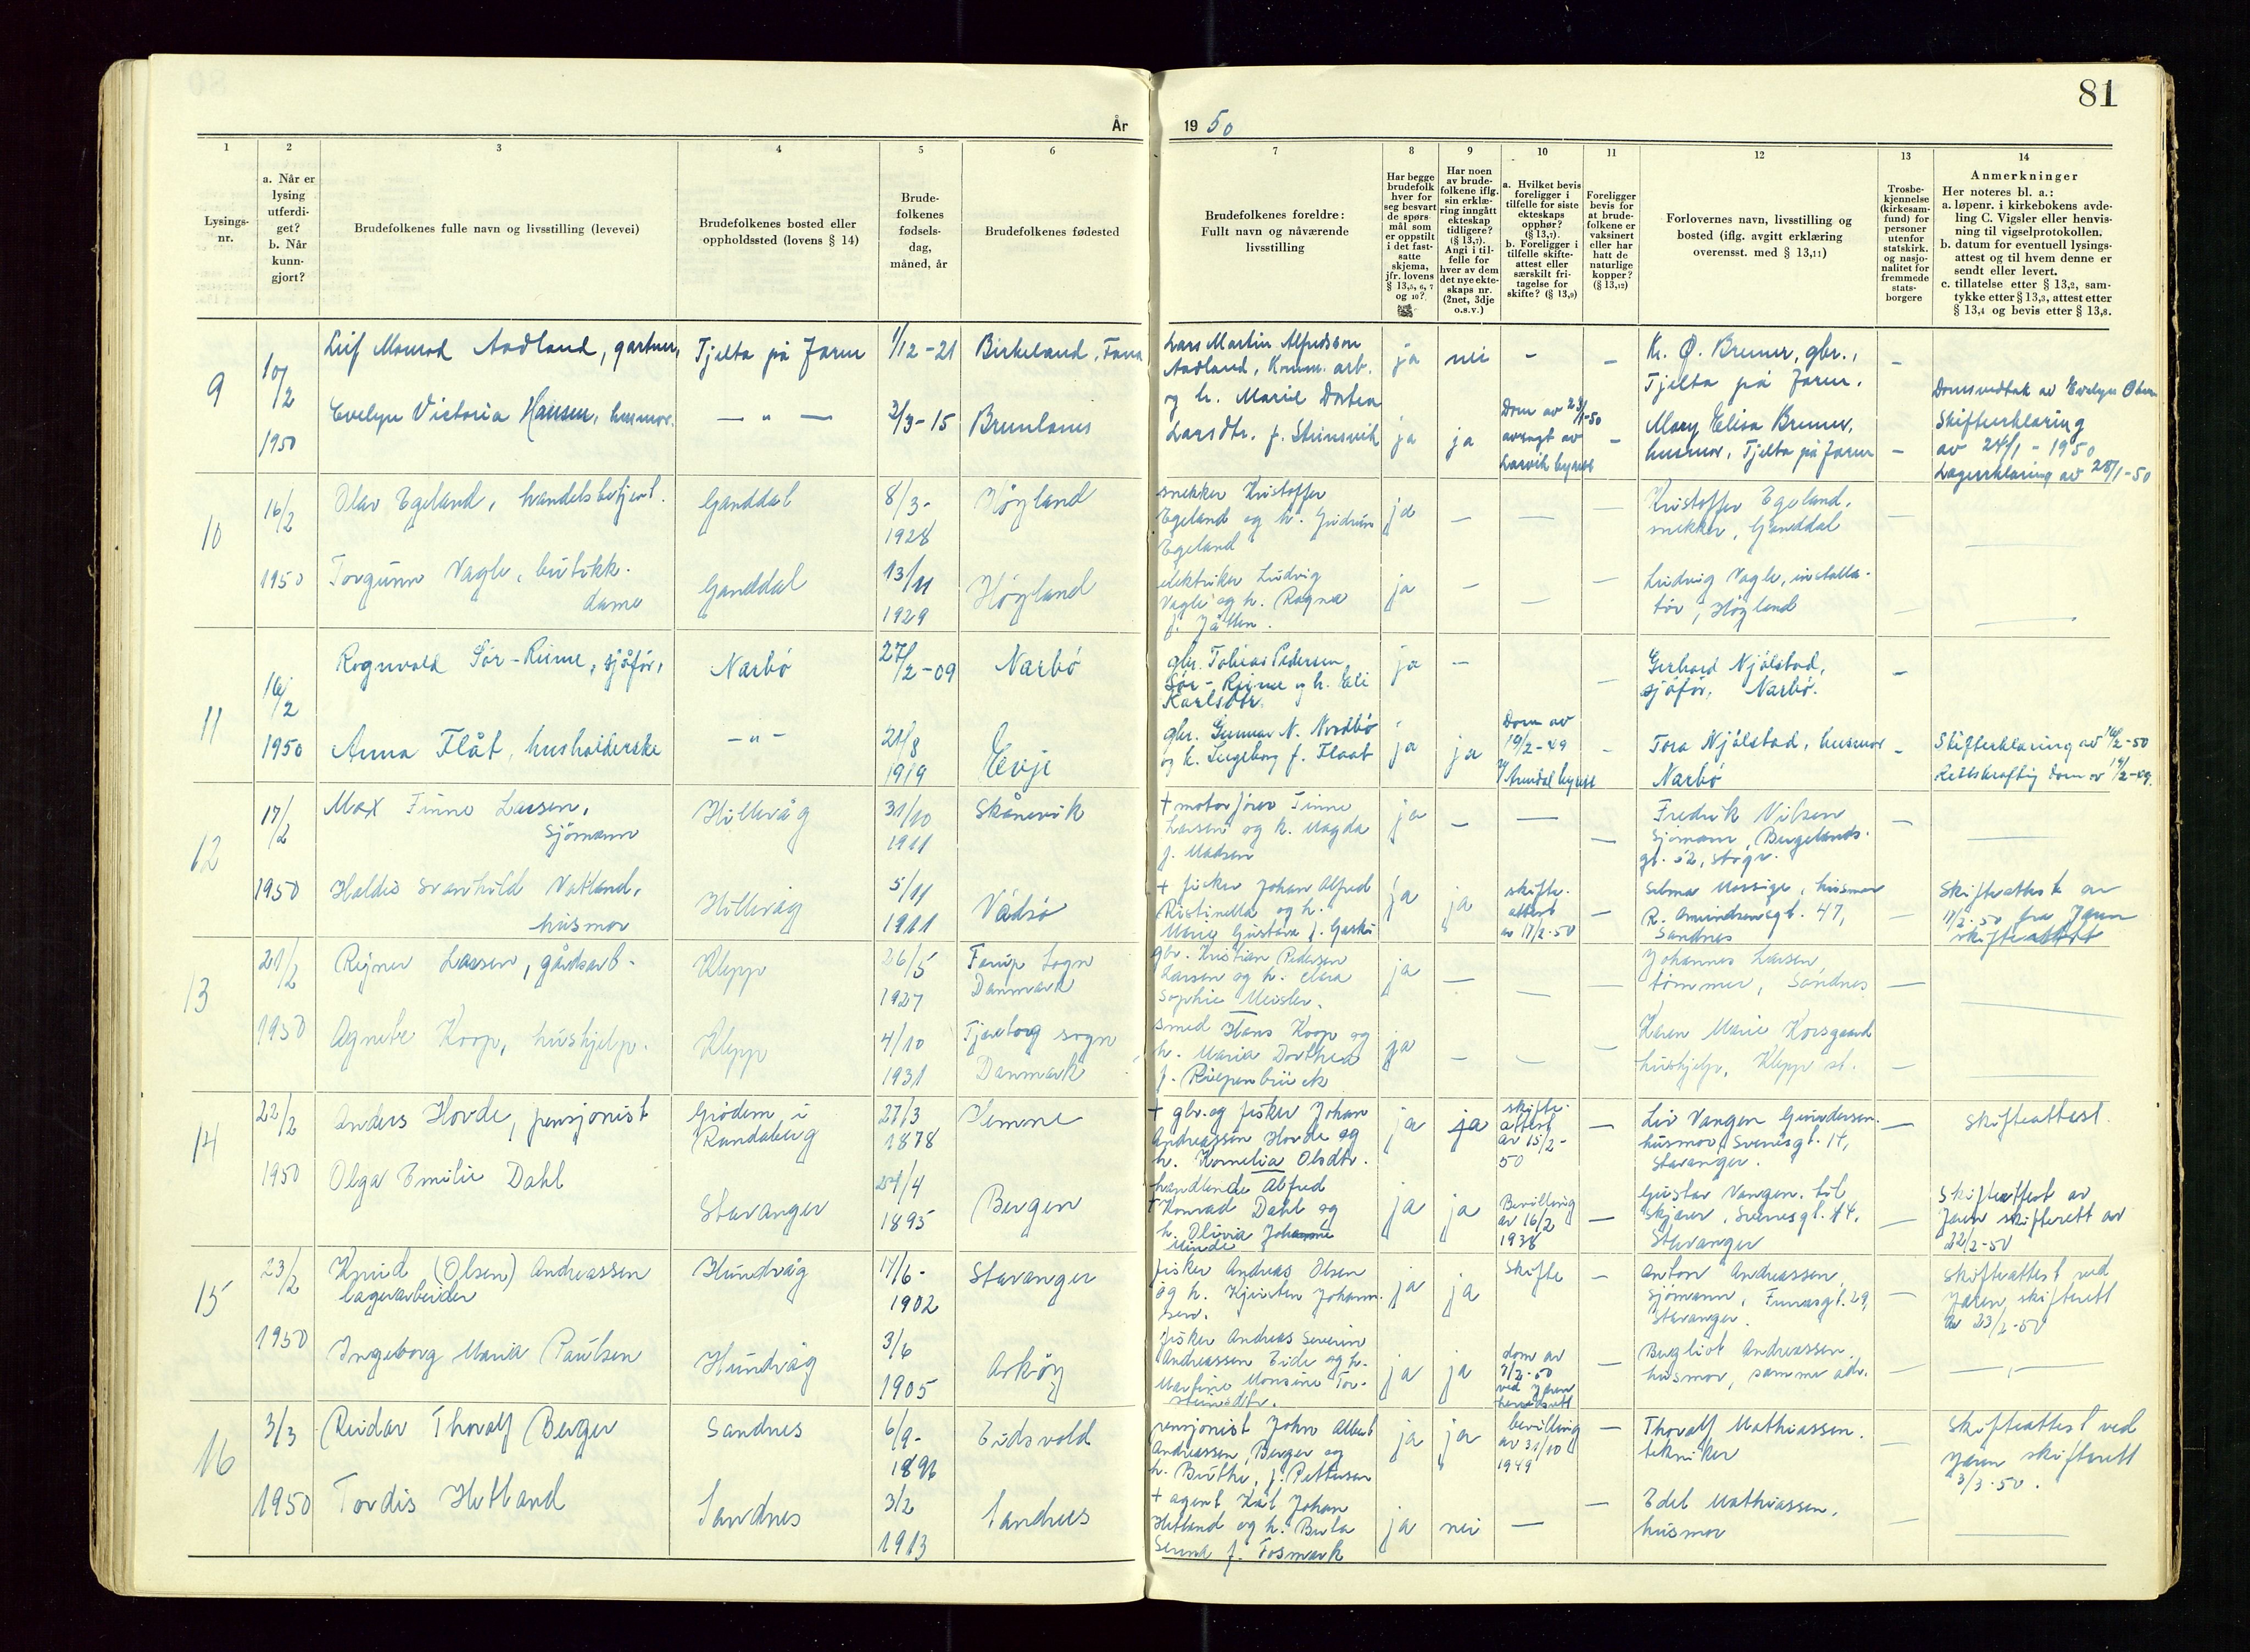 81
År
19 50
1
2
3
4
5
6
7
8
9
10
11
12
13
14
Lysings-
nr.
a. Når er
lysing
utferdi-
get?
b. Når
kunn-
gjort?
Brudefolkenes fulle navn og livsstilling (levevei)
Brudefolkenes bosted eller
oppholdssted (lovens § 14)
Brude-
folkenes
fødsels-
dag,
måned, år
Brudefolkenes fødested
Brudefolkenes foreldre:
Fullt navn og nåværende
livsstilling
Har begge
brudefolk
hver for
seg besvart
de spørs-
mål som
er oppstilt
i det fast-
satte
skjema,
jfr. lovens
§ 13,5, 6, 7
og 10?
Har noen
av brude-
folkene iflg.
sin erklæ-
ring inngått
ekteskap
tidligere?
(§ 13,7).
Angi i til-
felle for
hver av dem
det nye ekte-
skaps nr.
(2net, 3dje
o.s.v.)
a. Hvilket bevis
foreligger i
tilfelle for siste
ekteskaps
opphør?
(§ 13,7).
b. Foreligger i
tilfelle skifte-
attest eller
særskilt fri-
tagelse for
skifte? (§ 13,9)
Foreligger
bevis for
at brude-
folkene er
vaksinert
eller har
hatt de
naturlige
kopper?
(§ 13,12)
Forlovernes navn, livsstilling og
bosted (iflg. avgitt erklæring
overensst. med § 13,11)
Trosbe-
kjennelse
(kirkesam-
fund) for
personer
utenfor
statskirk.
og nasjo-
nalitet for
fremmede
stats-
borgere
Anmerkninger
Her noteres bl. a.:
a. løpenr. i kirkebokens avde-
ling C. Vigsler eller henvis-
ning til vigselprotokollen.
b. datum for eventuell lysings-
attest og til hvem denne er
sendt eller levert.
c. tillatelse etter § 13,2, sam-
tykke etter § 13,3, attest etter
§ 13,4 og bevis etter § 13,8.
9
10/2
1950
Leif Monrad Aadland, gartner,
Tjelta på Jæren
1/12-21
Birkeland, Fana
Lars Martin Alfredsson
Aadland, Komm. arb.
og h. Marie Dortea
Larsdtr. f. Steinsvik
ja
nei
-
-
K. Ø. Bremer, gbr.,
Tjelta på Jæren.
-
Evelyn Victoria Hansen, husmor.
— " —
2/3-15
Brunlanes
ja
ja
Dom av 23/1-50
avsagt av
Larvik byrett
-
Mary Elisa Bremer,
husmor, Tjelta på Jæren
-
Skifterklæring
av 24/1 - 1950
av 28/1-50
10
16/2
1950
Olav Egeland, handelsbetjent.
Ganddal
8/3-
1928
Høyland
snekker Kristoffer
Egeland og h. Gudrun
Egeland
ja
—
—
—
Kristoffer Egeland,
snekker, Ganddal
—
Torgunn Vagle, butikk-
dame
Ganddal
13/11
1929
Høyland
elektriker Ludvig
Vagle og h. Ragna
f. Jåtten.
ja
—
—
—
Ludvig Vagle, installa-
tør, Høyland
—
11
16/2
1950
Rognvald Sør-Reime, sjåfør,
Nærbø
27/2-09
Nærbø
gbr. Tobias Pedersen
Sør-Reime og h. Eli
Karlsdtr.
ja
—
—
Gerhard Njålstad,
sjåfør, Nærbø.
-
Anna Flåt, husholderske
— " —
21/8
1919
Evje
gbr. Gunnar N. Nordbø
og h. Ingeborg f. Flaat
ja
ja
Dom av
19/2-49
v/ Arendal byrett
-
Tora Njålstad, husmor
Nærbø
-
Skifterklæring av 16/2-50
Rettskraftig dom av 19/2-49.
12
17/2
1950
Max Finne Larsen,
sjømann
Hillevåg
31/10
1911
Skånevik
+ motorfører Finne
Larsen og h. Magda
f. Madsen
ja
—
—
—
Fredrik Nilsen
sjømann, Bergelands-
gt. 52, Stvgr.
—
Haldis Svanhild Vatland,
husmor
Hillevåg
5/11
1911
Vadsø
+ fisker Johan Alfred
Ristinella og h.
Marie Gustava f.
ja
ja
skifte-
attest
av 17/2-50
—
Selma Mossige, husmor
R. Amundsensgt. 47,
Sandnes
—
Skifteattest av
17/2-50 fra Jæren
skifterett
13
21/2
1950
Rejner Larsen, gårdsarb.
Klepp
26/5
1927
Farup sogn
Danmark
gbr. Kristian Pedersen
Larsen og h.
Sophie Meisler.
ja
—
—
—
Johannes Larsen,
tømmer, Sandnes
—
Agnete Koop, hushjelp.
Klepp
4/10
1931
Tjæreborg sogn
Danmark
smed Hans Koop og
h. Maria Dorthea
f. Riepenbrück
ja
—
—
—
Karen Marie Korsgaard
hushjelp, Klepp st.
—
14
22/2
1950
Anders Hovde, pensjonist
Grødem i
Randaberg
27/3
1878
Hemne
+ gbr. og fisker Johan
Andreassen Hovde og
h. Kornelia Olsdtr.
ja
ja
skifte-
attest
av 15/2-
50
—
Liv Vangen Gundersen
husmor, Sverresgt. 14,
Stavanger.
—
Skifteattest.
Olga Emilie Dahl
Stavanger
24/4
1895
Bergen
handlende Alfred
+ Konrad Dahl og
h. Olivia Johanne
Minde
ja
ja
Bevilling
av 16/2
1938
—
Gustav Vangen, til-
skjærer, Sverresgt. 14,
Stavanger
—
Skifteattest av
Jæren skifterett av
22/2-50
15
23/2
1950
Knud (Olsen) Andreassen
lagerarbeider
Hundvåg
17/6-
1902
Stavanger
fisker Andreas Olsen
og h. Kjirsten Johann-
sen.
ja
ja
skifte
—
Anton Andreassen,
sjømann, 29,
Stavanger.
—
Skifteattest ved
Jæren skifterett
av 23/2-50
Ingeborg Maria Paulsen
Hundvåg
3/6
1905
Askøy
fisker Andreas Severin
Andreassen Eide og h.
Martine Monsine Tor-
steinsdtr.
ja
ja
dom av
7/2-50
ved Jæren
herredsrett
—
Bergliot Andreassen,
husmor, samme adr.
—
— " —
16
3/3
1950
Reidar Thoralf Berger
Sandnes
6/9-
1896
Eidsvold
pensjonist Johan Albert
Andreassen, Berger og
h. Birthe, f. Pettersen
ja
ja
bevilling
av 31/10
1949
—
Thoralf Mathiassen.
tekniker
—
Skifteattest ved
Jæren skifterett
3/3-50.
Tordis Hetland
Sandnes
3/2
1913
Sandnes
+ agent Karl Johan
Hetland og h. Berta
f. Fosmark
ja
nei
—
—
Edel Mathiassen,
husmor
—